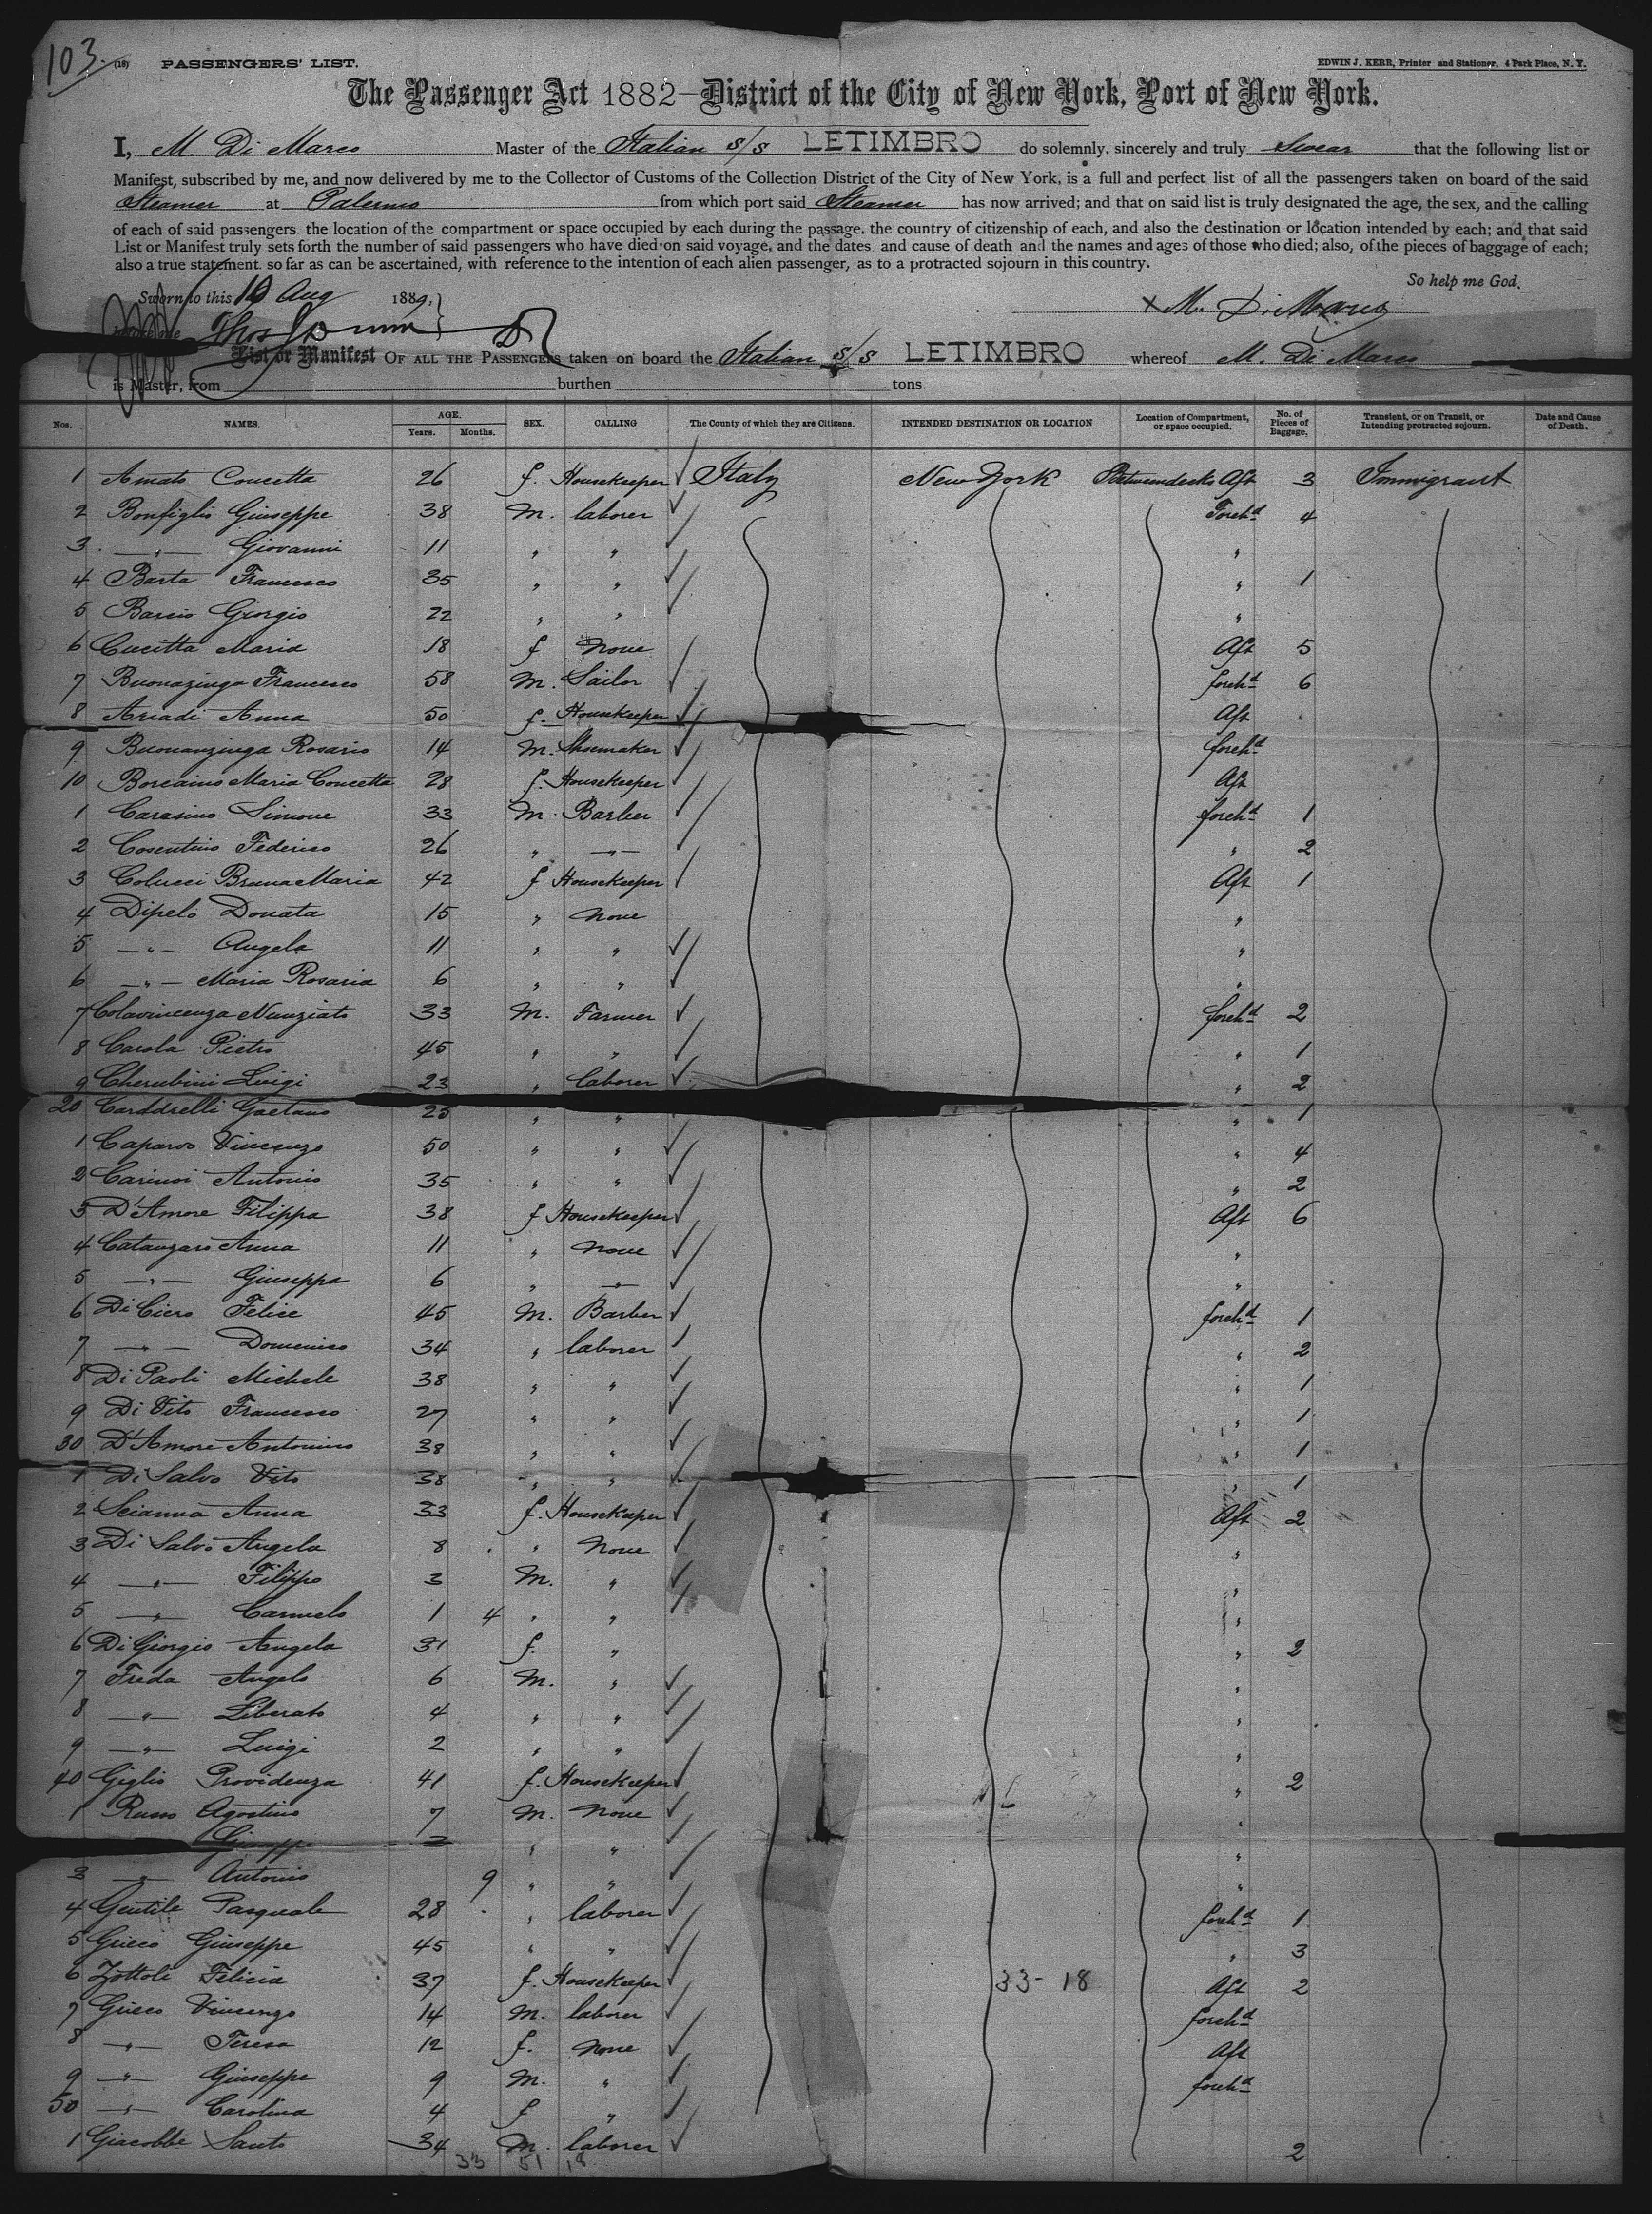 103.
(18) PASSENGERS' LIST.
EDWIN J. KERR, Printer and Stationer, 4 Park Place, N. Y.
The Passenger Act 1882—District of the City of New York, Port of New York.
I, M. Di Marco Master of the Italian s/s LETIMBRO do solemnly, sincerely and truly Swear that the following list or
Manifest, subscribed by me, and now delivered by me to the Collector of Customs of the Collection District of the City of New York, is a full and perfect list of all the passengers taken on board of the said
Steamer at Palermo from which port said Steamer has now arrived; and that on said list is truly designated the age, the sex, and the calling
of each of said passengers. the location of the compartment or space occupied by each during the passage. the country of citizenship of each, and also the destination or location intended by each; and that said
List or Manifest truly sets forth the number of said passengers who have died on said voyage, and the dates and cause of death and the names and ages of those who died; also, of the pieces of baggage of each;
also a true statement. so far as can be ascertained, with reference to the intention of each alien passenger, as to a protracted sojourn in this country.
So help me God.
Sworn to this 10 Aug 1889,
x M. Di Marco
before me
List or Manifest OF ALL THE PASSENGERS taken on board the Italian s/s LETIMBRO whereof M. Di Marco
is Master, from burthen tons.
Nos. NAMES. AGE. Years. Months. SEX. CALLING The County of which they are Citizens. INTENDED DESTINATION OR LOCATION Location of Compartment, or space occupied. No. of Pieces of Baggage. Transient, or on Transit, or Intending protracted sojourn. Date and Cause of Death.
1 Amato Concetta 26 f. Housekeeper Italy New York Betweendecks Aft 3 Immigrant
2 Bonfiglio Giuseppe 38 M. laborer Forehd 4
3 — " — Giovanni 11 " " "
4 Barta Francesco 35 " " " 1
5 Barcio Giorgio 22 " " "
6 Cucitta Maria 18 f None Aft 5
7 Buonazinga Francesco 58 M. Sailor forehd 6
8 Ariadi Anna 50 f. Housekeeper Aft
9 Buonanzinga Rosario 14 M. Shoemaker forehd
10 Borcaino Maria Concetta 28 f. Housekeeper Aft
1 Carasino Simone 33 M. Barber forehd 1
2 Cosentino Federico 26 " — " — " 2
3 Colucci Bruna Maria 42 f Housekeeper Aft 1
4 Dipelo Donata 15 " None "
5 — " — Angela 11 " " "
6 — " — Maria Rosaria 6 " " "
7 Colavincenza Nunziato 33 M. Farmer forehd 2
8 Carola Pietro 45 " " " 1
9 Cherubini Luigi 23 " laborer " 2
20 Carddrelli Gaetano 25 " " " 1
1 Caparvo Vincenzo 50 " " " 4
2 Carinoi Antonio 35 " " " 2
3 D'Amore Filippa 38 f Housekeeper Aft 6
4 Catanzaro Anna 11 " None "
5 — " — Giuseppa 6 " — " — "
6 Di Ciero Felice 45 M. Barber forehd 1
7 — " — Domenico 34 " laborer " 2
8 Di Paoli Michele 38 " " " 1
9 Di Vito Francesco 27 " " " 1
30 D'Amore Antonino 38 " " " 1
1 Di Salvo Vito 38 " " " 1
2 Scianna Anna 33 f. Housekeeper Aft 2
3 Di Salvo Angela 8 " None "
4 — " — Filippo 3 M. " "
5 — " — Carmelo 1 4 " " "
6 Di Giorgio Angela 31 f. " " 2
7 Freda Angelo 6 M. " "
8 — " — Liberato 4 " " "
9 — " — Luigi 2 " " "
40 Giglio Providenza 41 f. Housekeeper " 2
1 Russo Agostino 7 M. None "
Giuseppe " " "
3 — " — Antonio 9 " " "
4 Gentile Pasquale 28 " laborer forehd 1
5 Grieco Giuseppe 45 " " " 3
6 Zottoli Felicia 37 f. Housekeeper 33-18 Aft 2
7 Grieco Vincenzo 14 M. laborer forehd
8 — " — Teresa 12 f. None Aft
9 — " — Giuseppe 9 M. " forehd
50 — " — Carolina 4 f "
1 Giacobbe Santo 34 M. laborer 2
33 51 18